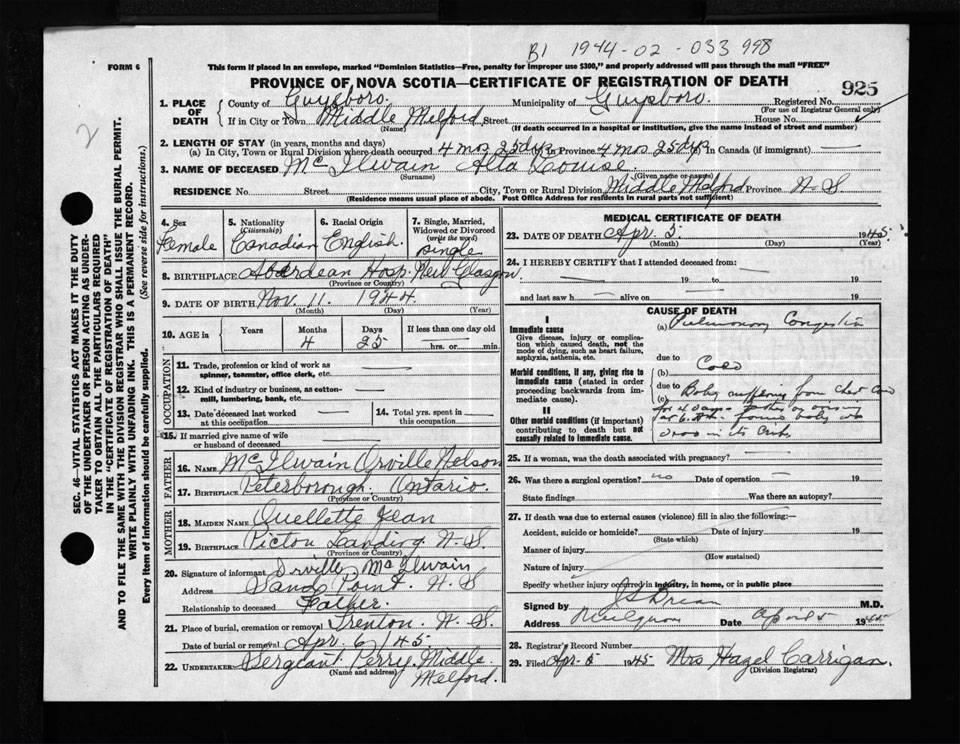 B1 1944-02-033998
FORM 6
This form if placed in an envelope, marked "Dominion Statistics—Free, penalty for improper use $300," and properly addressed will pass through the mail "FREE"
PROVINCE OF NOVA SCOTIA—CERTIFICATE OF REGISTRATION OF DEATH
925
2
SEC. 46—VITAL STATISTICS ACT MAKES IT THE DUTY
OF THE UNDERTAKER OR PERSON ACTING AS UNDER-
TAKER TO OBTAIN ALL THE PARTICULARS REQUIRED
IN THE "CERTIFICATE OF REGISTRATION OF DEATH"
AND TO FILE THE SAME WITH THE DIVISION REGISTRAR WHO SHALL ISSUE THE BURIAL PERMIT.
WRITE PLAINLY WITH UNFADING INK. THIS IS A PERMANENT RECORD.
Every item of Information should be carefully supplied. (See reverse side for instructions.)
1. PLACE OF DEATH
County of Guysboro. Municipality of Guysboro. Registered No.
(For use of Registrar General only)
If in City or Town Middle Melford. Street House No.
(Name) (If death occurred in a hospital or institution, give the name instead of street and number)
2. LENGTH OF STAY (in years, months and days)
(a) In City, Town or Rural Division where death occurred 4 mos 25 dys (b) In Province 4 mos 25 dys (c) In Canada (if immigrant) —
3. NAME OF DECEASED McIlwain Alta Louise.
(Surname) (Given name or names)
RESIDENCE No. Street City, Town or Rural Division Middle Melford Province N-S.
(Residence means usual place of abode. Post Office Address for residents in rural parts not sufficient)
4. Sex
Female
5. Nationality
(Citizenship)
Canadian
6. Racial Origin
English.
7. Single, Married,
Widowed or Divorced
(write the word)
Single
8. BIRTHPLACE Aberdean Hosp. New Glasgow
(Province or Country)
9. DATE OF BIRTH Nov. 11. 1944
(Month) (Day) (Year)
10. AGE in
Years Months Days If less than one day old
4 25 hrs. or min.
OCCUPATION
11. Trade, profession or kind of work as
spinner, teamster, office clerk, etc. —
12. Kind of industry or business, as cotton-
mill, lumbering, bank, etc. —
13. Date deceased last worked
at this occupation —
14. Total yrs. spent in
this occupation
15. If married give name of wife
or husband of deceased
FATHER
16. NAME McIlwain Orville Nelson
17. BIRTHPLACE Peterborough. Ontario.
(Province or Country)
MOTHER
18. MAIDEN NAME Ouellette Jean
19. BIRTHPLACE Pictou Landing N-S.
(Province or Country)
20. Signature of informant Orville McIlwain
Address Sand Point. N-S
Relationship to deceased Father.
21. Place of burial, cremation or removal Trenton. N-S.
Date of burial or removal Apr. 6/45
22. UNDERTAKER Sergeant Perry. Middle
(Name and address)
Melford.
MEDICAL CERTIFICATE OF DEATH
23. DATE OF DEATH Apr. 5. 1945.
(Month) (Day) (Year)
24. I HEREBY CERTIFY that I attended deceased from:
19 to 19
and last saw h alive on 19
CAUSE OF DEATH
I
Immediate cause
Give disease, injury or complica-
tion which caused death, not the
mode of dying, such as heart failure,
asphyxia, asthenia, etc.
Morbid conditions, if any, giving rise to
immediate cause (stated in order
proceeding backwards from im-
mediate cause).
II
Other morbid conditions (if important)
contributing to death but not
causally related to immediate cause.
(a) Pulmonary Congestion
due to
(b) Cold
due to
(c) Baby suffering from chest cold
for 4 days
found baby
dead in its crib.
25. If a woman, was the death associated with pregnancy? —
26. Was there a surgical operation? no Date of operation — 19
State findings Was there an autopsy?
27. If death was due to external causes (violence) fill in also the following:—
Accident, suicide or homicide? Date of injury 19
(State which)
Manner of injury
(How sustained)
Nature of injury
Specify whether injury occurred in industry, in home, or in public place
Signed by M.D.
Address Mulgrave Date April 5 1945
28. Registrar's Record Number
29. Filed Apr. 5 1945 Mrs Hazel Carrigan.
(Division Registrar)